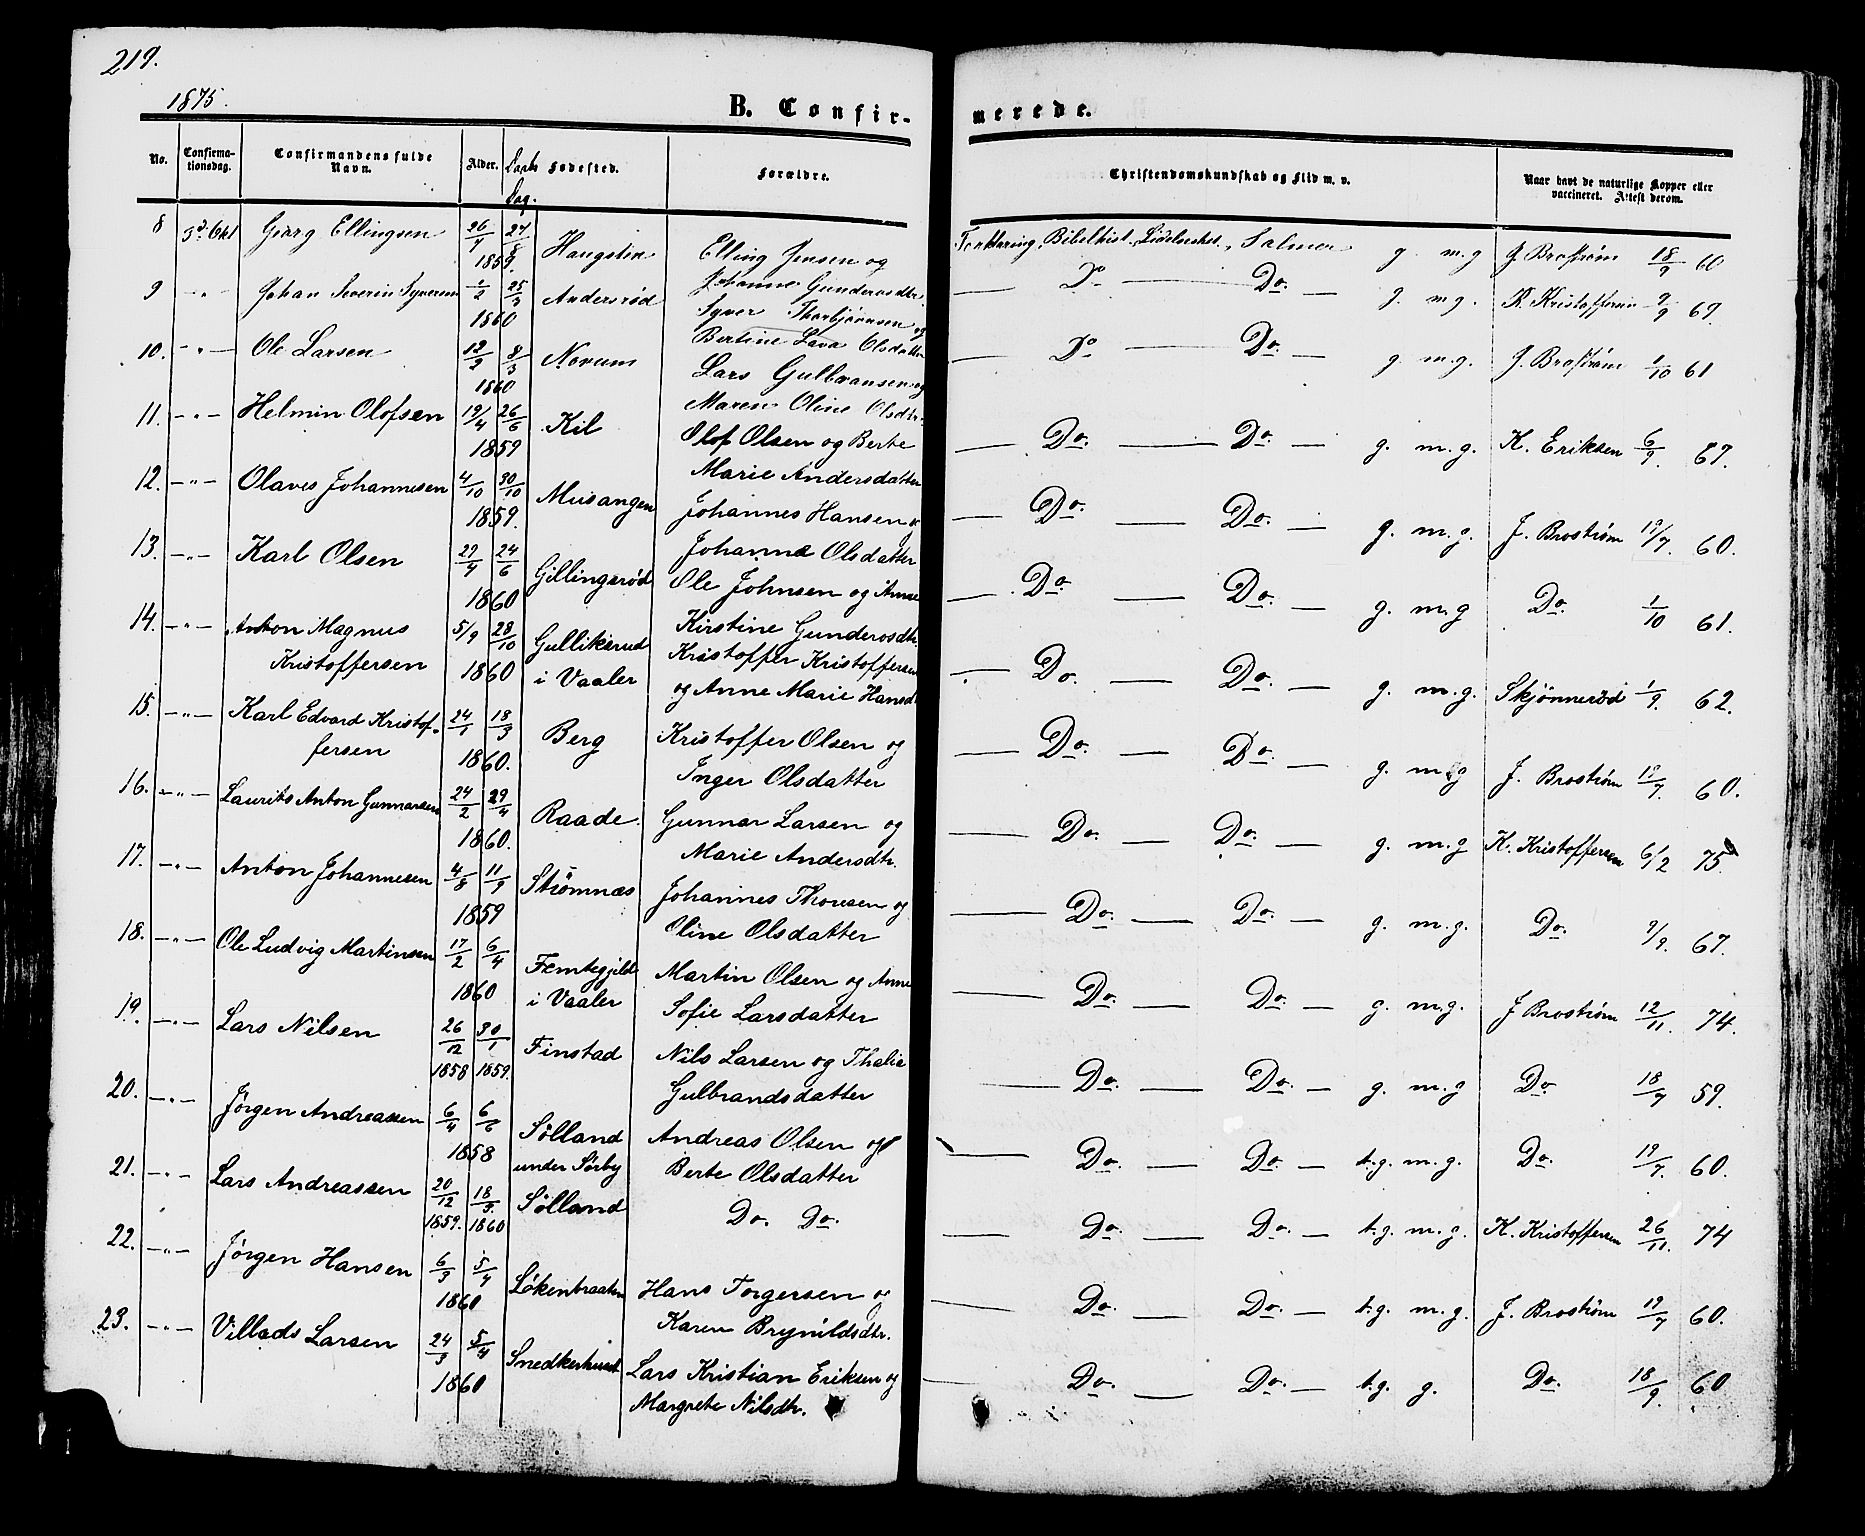 219.
1875.
B. Confirmerede.
No. Confirmationsdag. Confirmandens fulde Navn. Alder. Daabs Dag. Fødested. Forældre. Christendomskundskab og Flid m. v. Naar havt de naturlige Kopper eller vaccineret. Attest derom.
8 3d. Okt Georg Ellingsen 26/7 27/8 1859. Haugsten Elling Jensen og Johanne Gunderosdtr. Forklaring, Bibelhist., Salmer g. m. g J. Brostrøm 18/9 60
9 — " — Johan Severin Syversen 1/2 25/3 1860 Andersrød Syver Thorbjørnsen og Bertine Lava Olsdatter — Do — Do. — g. m g. K. Kristoffersen 9/9 69.
10. — " — Ole Larsen 12/2 8/3 1860 Norum Lars Gulbransen og Maren Oline Olsdtr. — Do — Do. — g. m. g. J. Brostrøm 1/10 61
11. — " — Helmin Olofsen 19/4 26/6 1859 Kil Olof Olsen og Berte Marie Andersdatter — Do. — Do. — g. m. g. K. Eriksen 6/9. 67.
12. — " — Olaves Johannesen 4/10 30/10 1859. Musangen Johannes Hansen og Johanna Olsdatter — Do. — Do. — g. m. g. J. Brostrøm 19/7. 60.
13. — " — Karl Olsen 29/4 24/6 1860 Gillingsrød Ole Johnsen og Anne Kirstine Gunderosdtr. — Do. — Do. — g. m. g Do. 1/10 61.
14. — " — Anton Magnus Kristoffersen 5/9 28/10 1860 Gulliksrud i Vaaler Kristoffer Kristoffersen og Anne Marie Hansd — Do. — Do. — g. m. g. Skjønnerød 1/9. 62.
15. — " — Karl Edvard Kristoffersen 24/1 18/3 1860. Berg Kristoffer Olsen og Inger Olsdatter — Do. — Do. — g. m. g J. Brostrøm 19/7. 60.
16. — " — Laurits Anton Gunnarsen 24/2 29/4 1860. Raade. Gunnar Larsen og Marie Andersdtr. — Do. — Do. — g. m. g K. Kristoffersen 6/2 75
17. — " — Anton Johannesen 4/8 11/9 1859 Strømnæs Johannes Thoresen og Oline Olsdatter — Do. — Do. — g. m. g. Do. 9/9. 67.
18. — " — Ole Ludvig Martinsen 17/2 6/4 1860 Femtegjeld i Vaaler Martin Olsen og Anne Sofie Larsdatter — Do. — Do. — g. m. g. J Brostrøm 12/11. 74.
19. — " — Lars Nilsen 26/12 1858 30/1 1859. Finstad Nils Larsen og Thalia Gulbrandsdatter — Do. — Do. — g. m. g Do. 18/7 59.
20. — " — Jörgen Andreassen 6/4 6/6 1858 Sölland under Sörby Andreas Olsen og Berte Olsdatter — Do. — Do. — t. g. m. g. Do. 19/7. 60.
21. — " — Lars Andreassen 20/12 1859. 18/3. 1860 Sölland Do. Do. — Do. — Do. — t. g. m. g. K. Kristoffersen 26/11. 74
22. — " — Jörgen Hansen 6/3 5/4 1860 Lökenbraaten Hans Torgersen og Karen Brynildsdtr. — Do. — Do. — t. g. m. g. J. Brostrøm 19/7 60.
23. — " — Villads Larsen 24/3 5/4 1860 Snedkerhuset Lars Kristian Eriksen og Margrete Nilsdtr. — Do. — Do. — t. g. g. Do. 18/9. 60